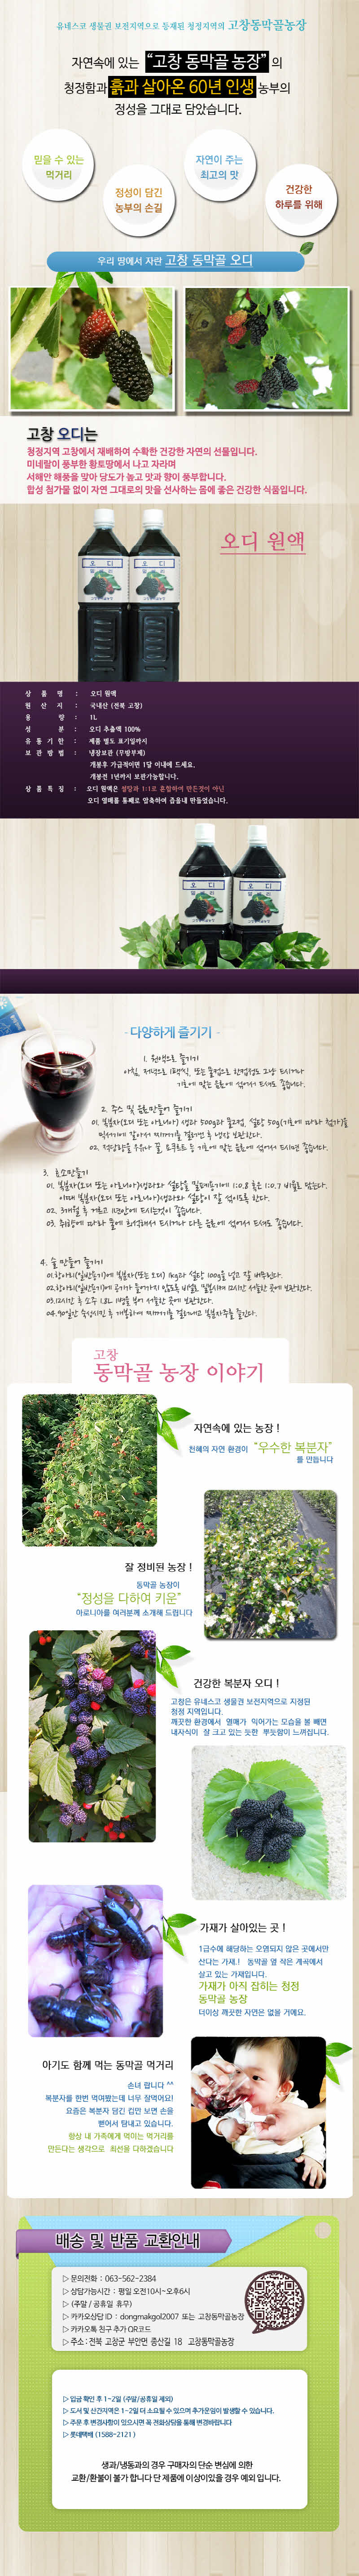 유네스코 생물권 보전지역으로 등재된 청정지역의 고창동막골농장
자연속에 있는 “고창 동막골 농장” 의
청정함과 흙과 살아온 60년 인생 농부의
정성을 그대로 담았습니다.
믿을 수 있는
먹거리
정성이 담긴
농부의 손길
자연이 주는
최고의 맛
건강한
하루를 위해
우리 땅에서 자란 고창 동막골 오디
고창 오디는
청정지역 고창에서 재배하여 수확한 건강한 자연의 선물입니다.
미네랄이 풍부한 황토땅에서 나고 자라며
서해안 해풍을 맞아 당도가 높고 맛과 향이 풍부합니다.
합성 첨가물 없이 자연 그대로의 맛을 선사하는 몸에 좋은 건강한 식품입니다.
오디 원액
상 품 명 : 오디 원액
원 산 지 : 국내산 (전북 고창)
용 량 : 1L
성 분 : 오디 추출액 100%
유 통 기 한 : 제품 별도 표기일까지
보 관 방 법 : 냉장보관 (무방부제)
개봉후 가급적이면 1달 이내에 드세요.
개봉전 1년까지 보관가능합니다.
상 품 특 징 : 오디 원액은 설탕과 1:1로 혼합하여 만든것이 아닌
오디 열매를 통째로 압축하여 즙을내 만들었습니다.
- 다양하게 즐기기 -
1. 원액으로 즐기기
아침, 저녁으로 1컵씩, 또는 물컵으로 한컵정도 그냥 드시거나
기호에 맞는 음료에 섞어서 드셔도 좋습니다.
2. 주스 및 음료만들어 즐기기
01. 복분자(오디 또는 아로니아) 생과 500g과 물2컵, 설탕 50g(기호에 따라 첨가)을
믹서기에 갈아서 찌꺼기를 걸러낸 후 냉장 보관한다.
3. 효소만들기
01. 복분자(오디 또는 아로니아)생과와 설탕을 밀폐용기에 1:0.8 혹은 1:0.7 비율로 담는다.
이때 복분자(오디 또는 아로니아)생과와 설탕이 잘 섞이도록 한다.
02. 3개월 후 거르고 1년안에 드시는것이 좋습니다.
03. 취향에 따라 물에 희석해서 드시거나 다른 음료에 섞어서 드셔도 좋습니다.
4. 술 만들어 즐기기
01.항아리(일반용기)에 복분자(또는 오디) 1kg과 설탕 100g을 넣고 잘 버무린다.
03.12시간 후 소주 1.8L 1병을 부어 서늘한 곳에 보관한다.
고창
동막골 농장 이야기
자연속에 있는 농장 !
천혜의 자연 환경이 “우수한 복분자”
를 만듭니다
잘 정비된 농장 !
동막골 농장이
“정성을 다하여 키운”
아로니아를 여러분께 소개해 드립니다
건강한 복분자 오디 !
고창은 유네스코 생물권 보전지역으로 지정된
청정 지역입니다.
깨끗한 환경에서 열매가 익어가는 모습을 볼 때면
내자식이 잘 크고 있는 듯한 뿌듯함이 느껴집니다.
가재가 살아있는 곳 !
1급수에 해당하는 오염되지 않은 곳에서만
산다는 가재.! 동막골 옆 작은 계곡에서
살고 있는 가재입니다.
가재가 아직 잡히는 청정
동막골 농장
더이상 깨끗한 자연은 없을 거예요.
아기도 함께 먹는 동막골 먹거리
손녀 랍니다 ^^
복분자를 한번 먹여봤는데 너무 잘먹어요!
요즘은 복분자 담긴 컵만 보면 손을
뻗어서 탐내고 있습니다.
항상 내 가족에게 먹이는 먹거리를
만든다는 생각으로 최선을 다하겠습니다
배송 및 반품 교환안내
▷ 문의전화 : 063-562-2384
▷ 상담가능시간 : 평일 오전10시~오후6시
▷ (주말 / 공휴일 휴무)
▷ 카카오상담 ID : dongmakgol2007 또는 고창동막골농장
▷ 카카오톡 친구 추가 QR코드
▷ 주소 : 전북 고창군 부안면 중산길 18 고창동막골농장
▷ 입금 확인 후 1~2일 (주말/공휴일 제외)
▷ 도서 및 산간지역은 1-2일 더 소요될 수 있으며 추가운임이 발생할 수 있습니다.
▷ 주문 후 변경사항이 있으시면 꼭 전화상담을 통해 변경바랍니다
▷ 롯데택배 (1588-2121 )
생과/냉동과의 경우 구매자의 단순 변심에 의한
교환/환불이 불가 합니다 단 제품에 이상이있을 경우 예외 입니다.